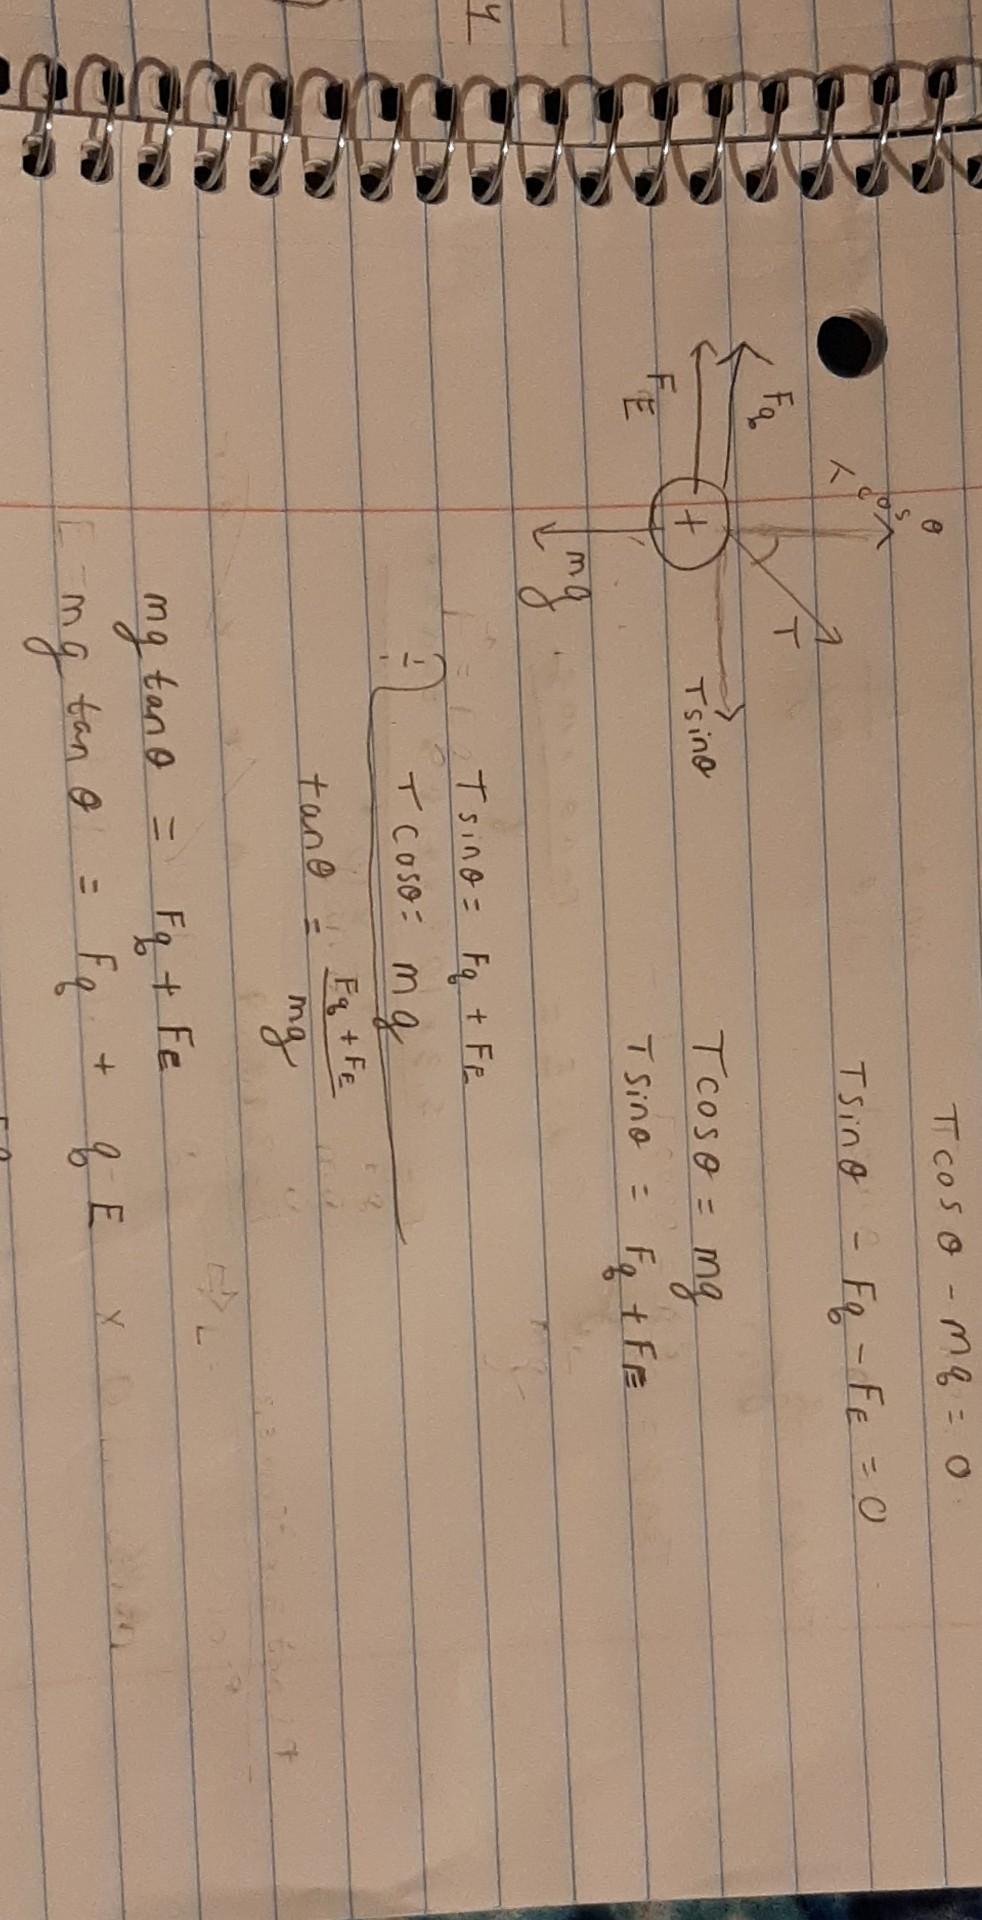 T cos θ - mg = 0
T sin θ - Fq - FE = 0
T cos θ
T
Fq
FE
T sin θ
mg
T cos θ = mg
T sin θ = Fq + FE
T sin θ = Fq + FE
÷ T cos θ = mg
tan θ = Fq + FE
mg
mg tan θ = Fq + FE
mg tan θ = Fq + q E